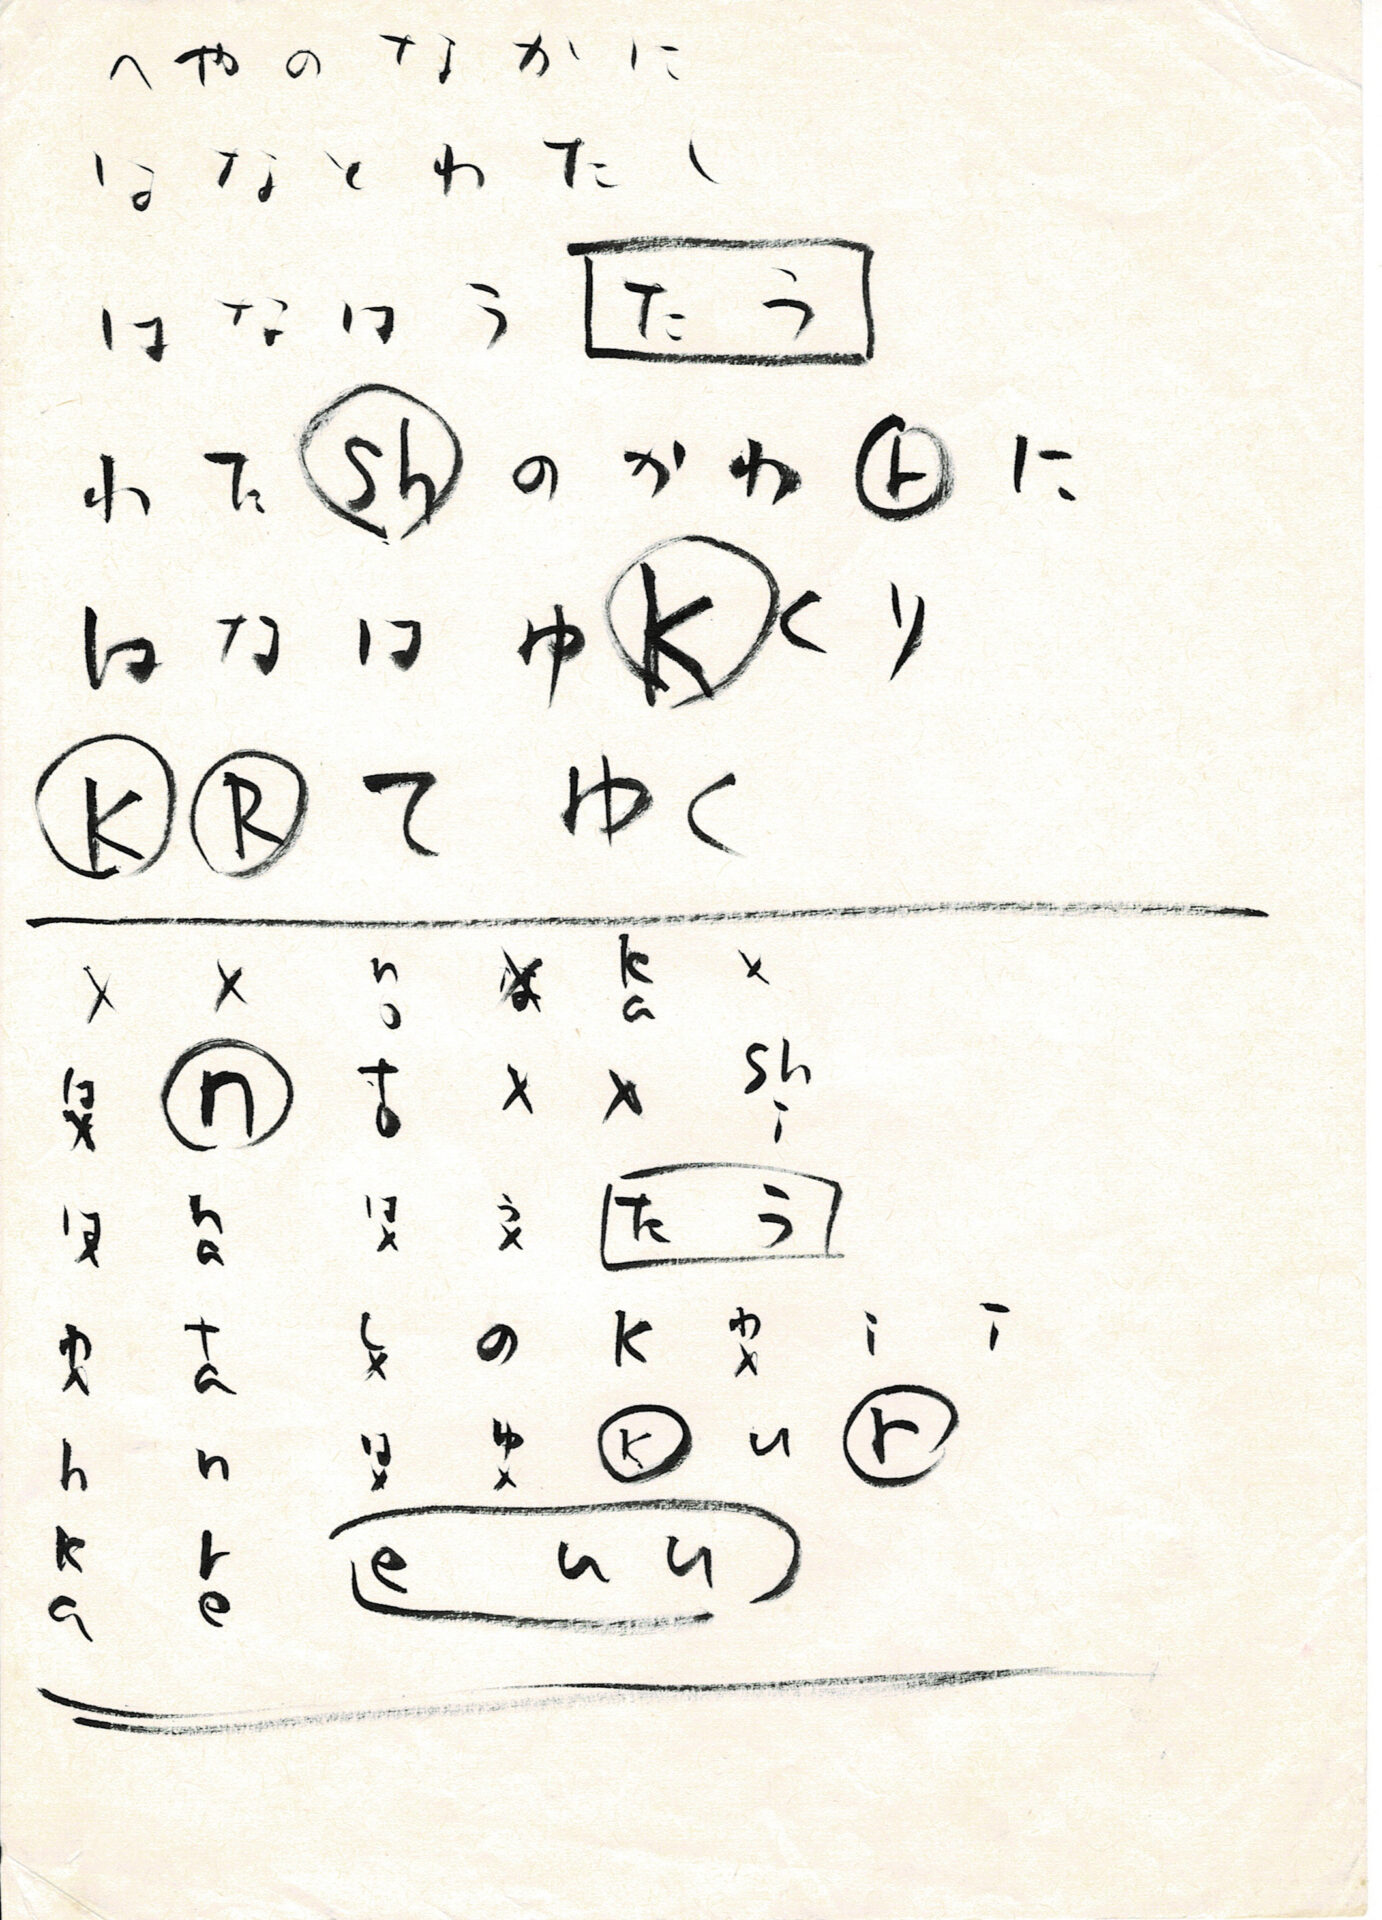 へやのなかに
はなとわたし
はなはうたう
わたshのかわrに
はなはゆKくり
KRてゆく
x x no ka x
は n to x x shi
は na は う たう
わ ta し の K わ i i
h n は ゆ K u r
ka re e u u